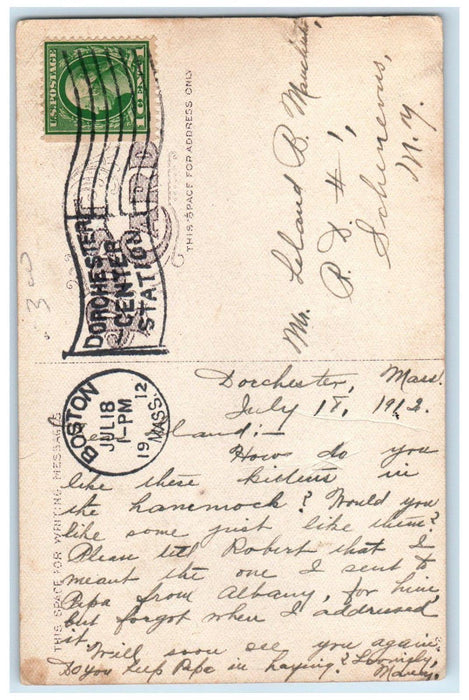 U.S. POSTAGE
1 CENT 1
DORCHESTER
CENTER
STATION
THIS SPACE FOR ADDRESS ONLY
Mr. Leland B.
R. D. #1,
Schenevus,
N.Y.
300
BOSTON
JUL 18
1-PM
1912
MASS.
THIS SPACE FOR WRITING MESSAGES
Dorchester, Mass.
July 18, 1912.
Dear Leland:-
How do you
like these kittens in
the hammock? Would you
like some just like them?
Please tell Robert that I
meant the one I sent to
Papa from Albany, for him
but forgot when I addressed
it.
Will soon see you again.
Do you help Papa in haying? Lovingly,